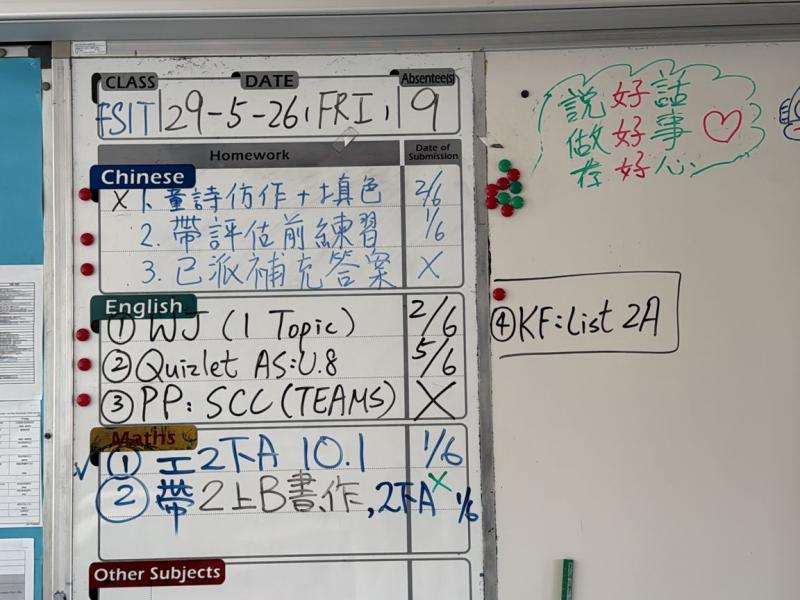 CLASS DATE Absentee(s)
FSIT 29-5-26, FRI, 9
Homework Date of Submission
Chinese
X 1. 童詩仿作+填色 2/6
2. 帶評估前練習 1/6
3. 已派補充答案 X
English
① WJ (1 Topic) 2/6
② Quizlet AS:U.8 5/6
③ PP: SCC (TEAMS) X
Maths
✓ ① 工2下A 10.1 1/6
② 帶2上B書,作,2下A X 1/6
Other Subjects
說好話
做好事 ♡
存好心
④ KF: List 2A